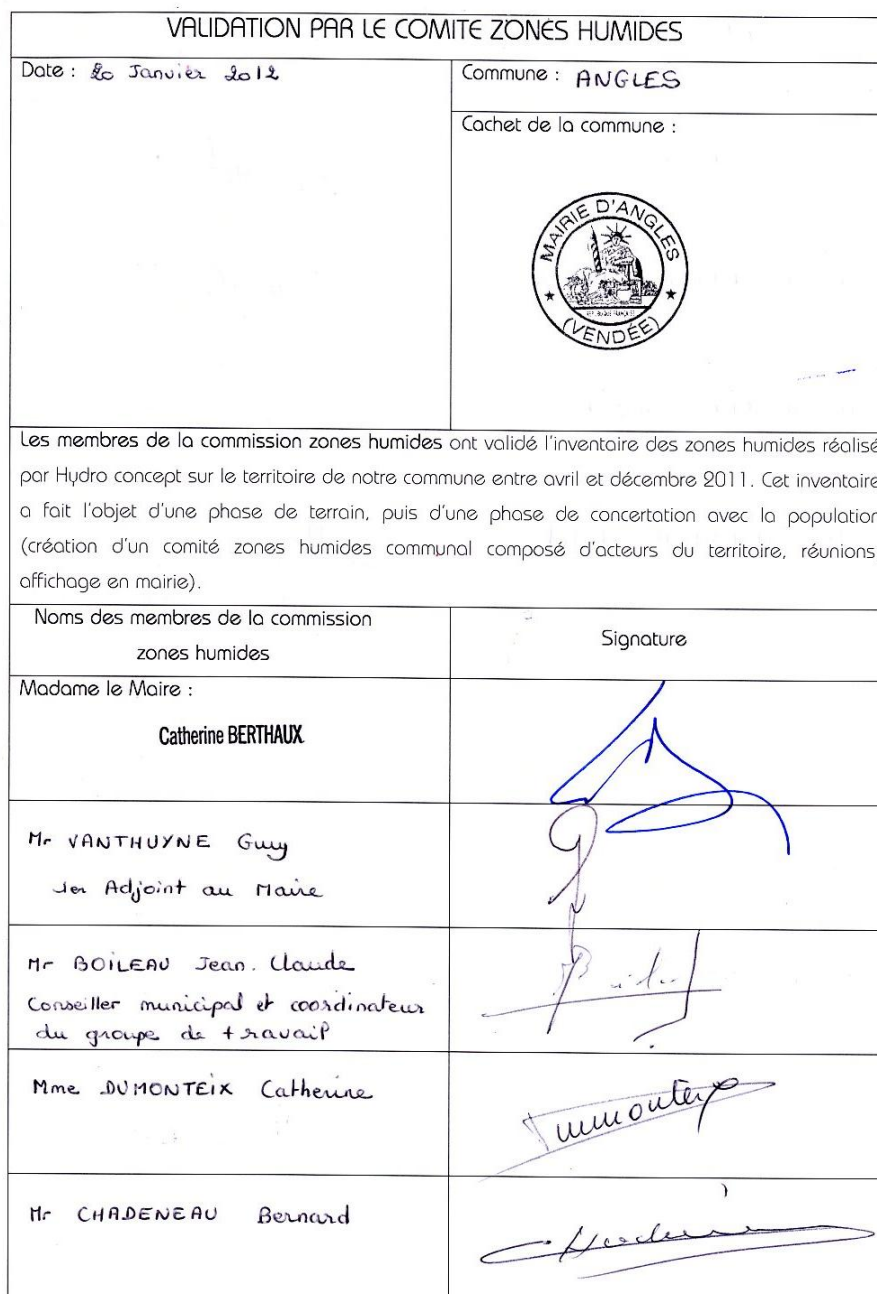 VALIDATION PAR LE COMITE ZONES HUMIDES
Date : 20 Janvier 2012
Commune : ANGLES
Cachet de la commune :
MAIRIE D'ANGLES
REPUBLIQUE FRANÇAISE
(VENDÉE)
Les membres de la commission zones humides ont validé l'inventaire des zones humides réalisé
par Hydro concept sur le territoire de notre commune entre avril et décembre 2011. Cet inventaire
a fait l'objet d'une phase de terrain, puis d'une phase de concertation avec la population
(création d'un comité zones humides communal composé d'acteurs du territoire, réunions
affichage en mairie).
Noms des membres de la commission
zones humides
Signature
Madame le Maire :
Catherine BERTHAUX
Mr VANTHUYNE Guy
1er Adjoint au Maire
Mr BOILEAU Jean. Claude
Conseiller municipal et coordinateur
du groupe de travail
Mme DUMONTEIX Catherine
Dumonteix
Mr CHADENEAU Bernard